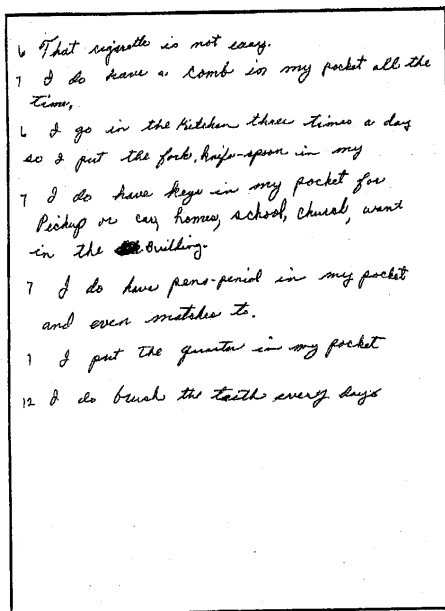 6 That cigarette is not easy.
7 I do have a comb in my pocket all the
time,
6 I go in the Kitchen three times a day
so I put the fork, knife-spoon in my
7 I do have keys in my pocket for
Pickup or car, homes, school, church, want
in the Building.
7 I do have pens-penicl in my pocket
and even matches to.
7 I put the quarter in my pocket
12 I do brush the teeth every days